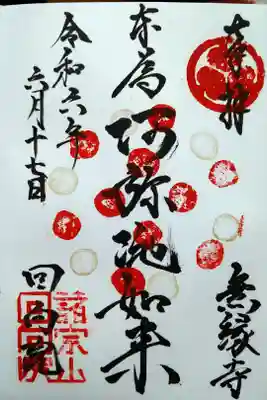 奉拝
無縁寺
本尊 阿彌陀如来
令和六年
六月十七日
回向院
諸宗山
回向院